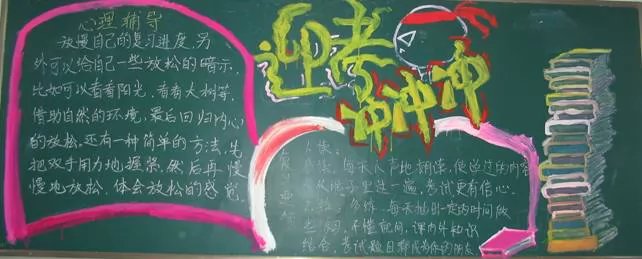 心理辅导
放慢自己的复习进度,另
外可以给自己一些放松的暗示,
比如可以看看阳光,看看大树等,
借助自然的环境,最后回归内心
的放松。还有一种简单的方法,先
把双手用力地握紧,然后再慢
慢地放松,体会放松的感觉。
迎考
冲冲冲
读。每天大声地朗读,使学过的内容
从脑子里过一遍,考试更有信心。
多练。每天抽出一定的时间做
练习,不懂就问,课内外知识
结合,考试题目都成为你的朋友